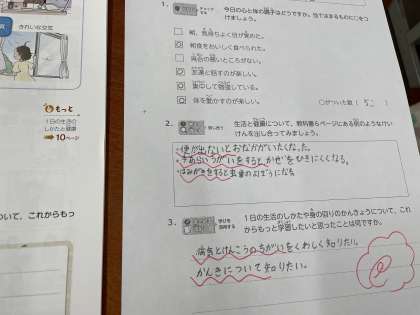 きれいな空気
もっと
1日の生活の
しかたと健康
10ページ
ついて、これからもっ
1. 今日の心と体の調子はどうですか。当てはまるものに○をつ
けましょう。
朝、気持ちよく目が覚めた。
朝食をおいしく食べられた。
具合の悪いところがない。
友達と話すのが楽しい。
集中して勉強している。
体を動かすのが楽しい。
○がついた数 ( 5 )
2. 生活と健康について、教科書6ページにある例のようなけい
けんを出し合ってみましょう。
・便が出ないとおなかがいたくなった。
・手あらいうがいをするとかぜをひきにくくなる。
・はみがきをすると虫歯のよぼうになる
3. 1日の生活のしかたや身の回りのかんきょうについて、これ
からもっと学習したいと思ったことは何ですか。
病気とけんこうのちがいをくわしく知りたい。
かんきについて知りたい。